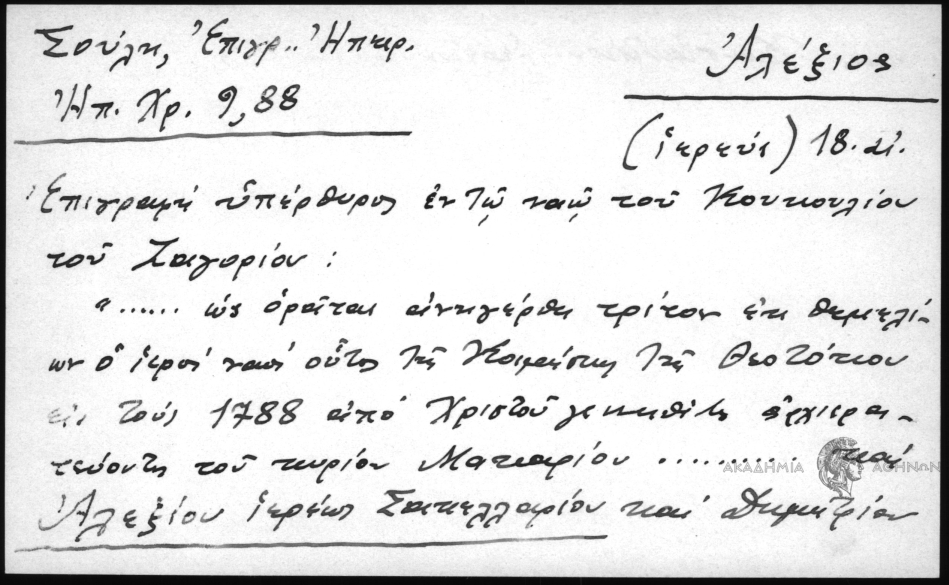 Σούλη, Ἐπιγρ.. Ἠπειρ.
Ἠπ. Χρ. 9,88
Ἀλέξιος
(ἱερεύς) 18. αἰ.
Ἐπιγραφή ὑπέρθυρος ἐν τῷ ναῷ τοῦ Κουκουλίου
τοῦ Ζαγορίου :
"...... ὡς ὁρᾶται ἀνηγέρθη τρίτον ἐκ θεμελί-
ων ὁ ἱερός ναός οὗτος τῆς Κοιμήσεως τῆς Θεοτόκου
εἰς τούς 1788 ἀπό Χριστοῦ ἀρχιερα-
τεύοντος τοῦ κυρίου Μακαρίου ........... καί
Ἀλεξίου ἱερέως Σακελλαρίου καί Δημητρίου
ΑΚΑΔΗΜΙΑ ΑΘΗΝΩΝ